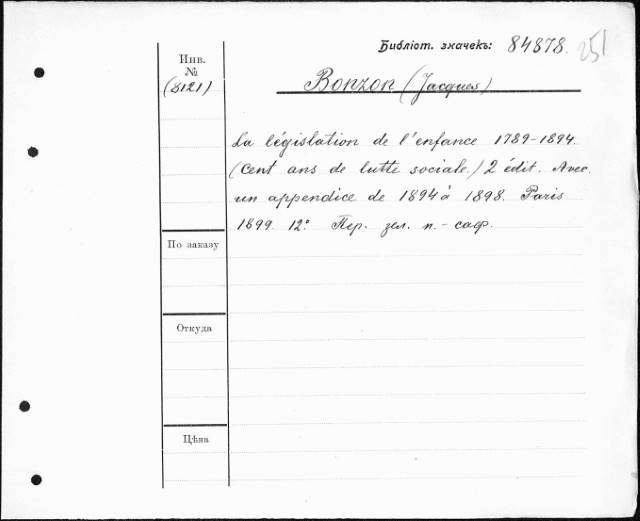 Библіот. значекъ: 84878. 251
Инв.
№
(3121)
Bonzon (Jacques)
La législation de l'enfance 1789-1894.
(Cent ans de lutte sociale.) 2 édit. Avec.
un appendice de 1894 à 1898. Paris
1899. 12°. Пер. зел. п.-саф.
По заказу
Откуда
Цѣна